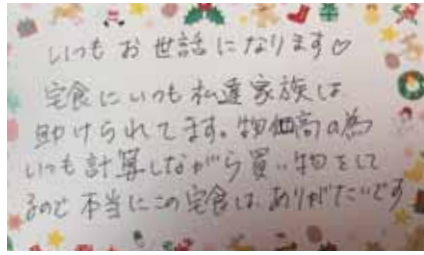 いつもお世話になります♡
宅食にいつも私達家族は
助けられてます。物価高の為
いつも計算しながら買い物をして
るので本当にこの宅食はありがたいです